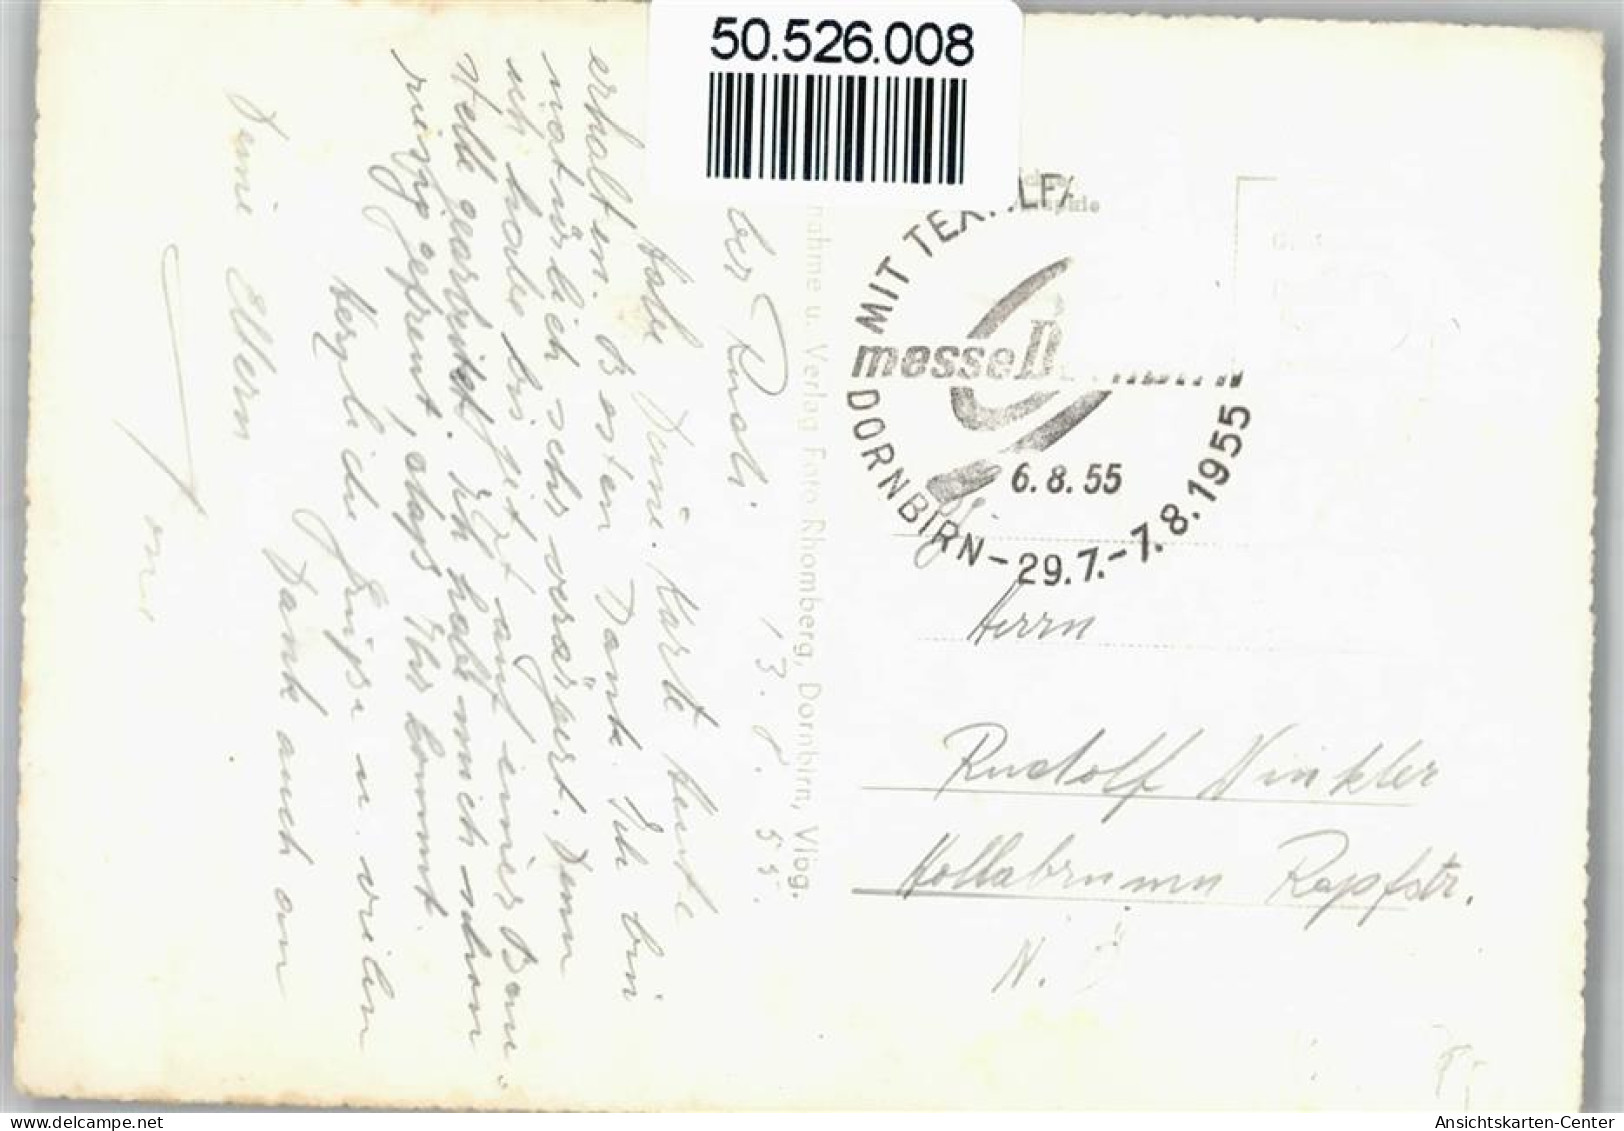 50.526.008
MIT TEX
messe D
6.8.55
DORNBIRN-29.7.-7.8.1955
nahme u. Verlag Foto Rhomberg, Dornbirn, Vlbg.
13. 8. 55.
Rudi.
Habe Deine Karte heute
erhalten. Besten Dank. Ich bin
natürlich sehr verärgert. Denn
ich habe bis jetzt auf einer
gearbeitet. Ich habe mich schon
riesig gefreut, dass Ihr kommt.
Herzliche Grüße u. vielen
Dank auch an
Deine Eltern
Herrn
Rudolf Winkler
Hollabrunn Rapfstr.
N. Ö
Ansichtskarten-Center
https://www.ansichtskarten-center.de